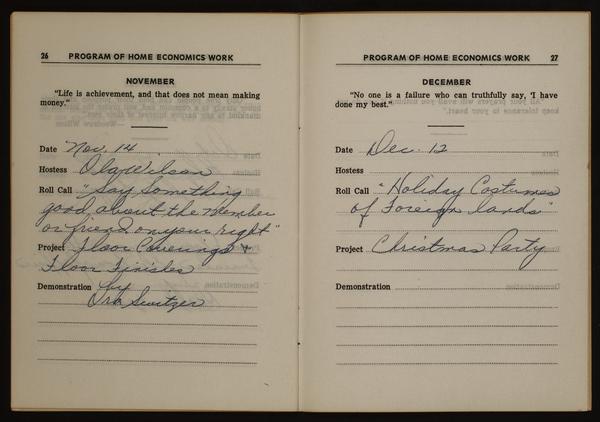 26 PROGRAM OF HOME ECONOMICS WORK
NOVEMBER
"Life is achievement, and that does not mean making
money."
Date Nov. 14
Hostess Ola Wilson
Roll Call "Say Something
good about the member
or friend on your right"
Project Floor Coverings &
Floor Finishes
Demonstration by
Ora Switzer
PROGRAM OF HOME ECONOMICS WORK 27
DECEMBER
"No one is a failure who can truthfully say, 'I have
done my best.'"
Date Dec. 12
Hostess
Roll Call "Holiday Costumes
of Foreign lands"
Project Christmas Party
Demonstration